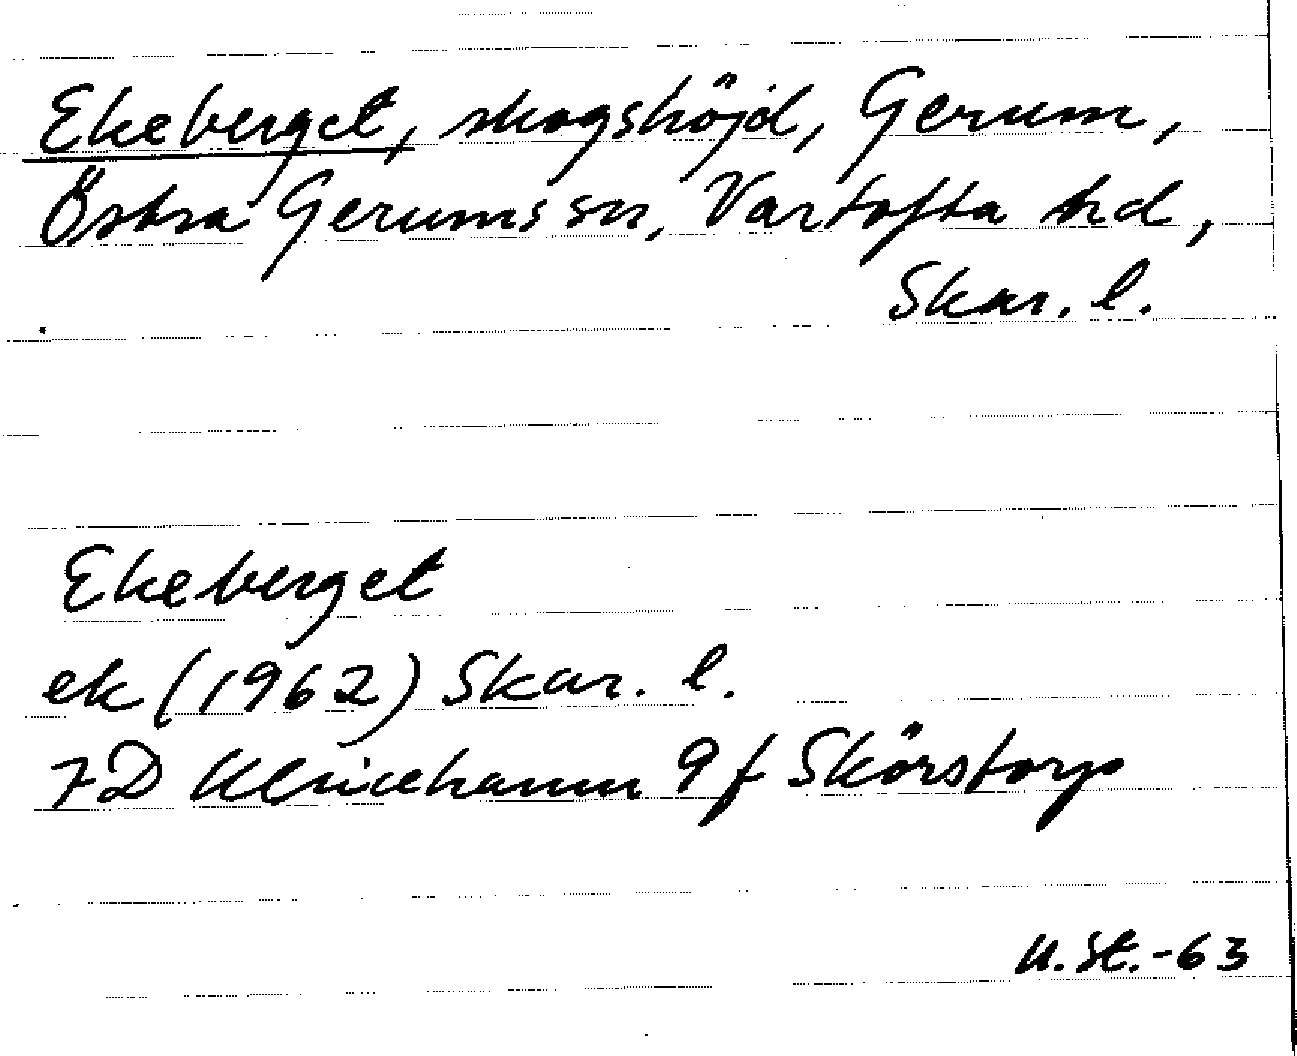 Ekeberget, skogshöjd, Gerum,
Östra Gerums sn, Vartofta hd,
Skar. l.
Ekeberget
ek (1962) Skar. l.
7D Ulricehamn 9f Skörstorp
U. St. -63